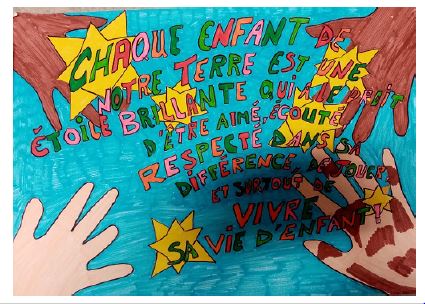 CHAQUE ENFANT DE
NOTRE TERRE EST UNE
ÉTOILE BRILLANTE QUI A LE DROIT
D'ÊTRE AIMÉ, ÉCOUTÉ,
RESPECTÉ DANS SA
DIFFÉRENCE, DE JOUER
ET SURTOUT DE
VIVRE
SA VIE D'ENFANT!